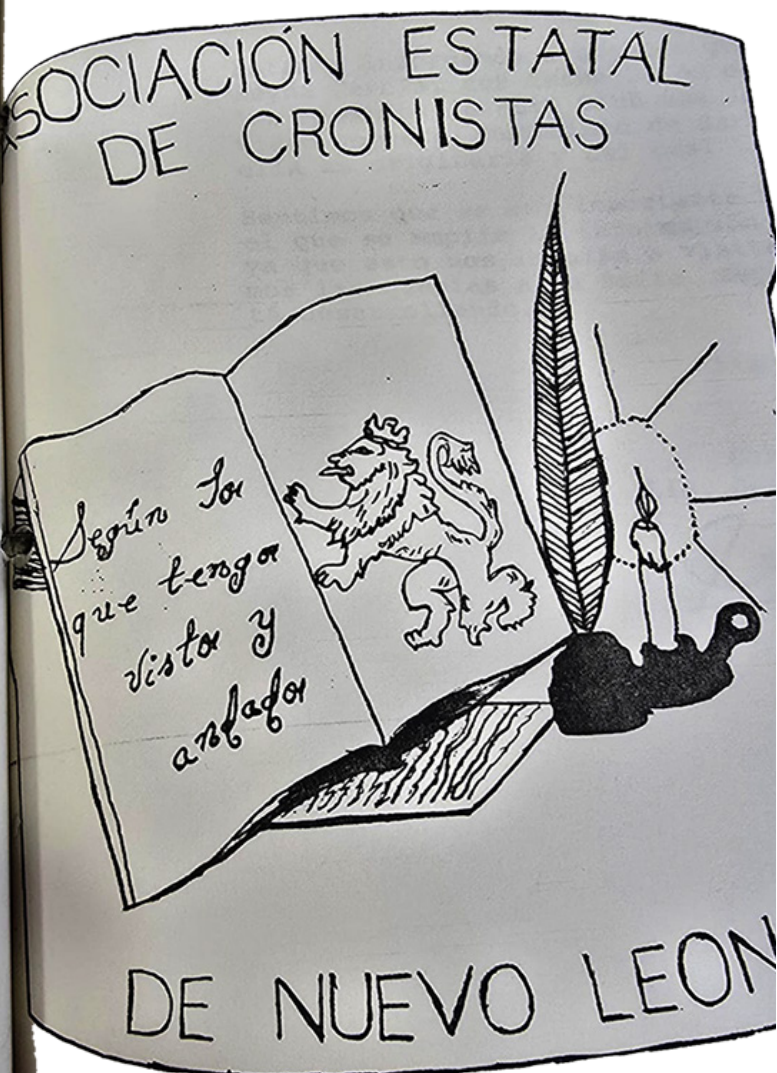 ASOCIACIÓN ESTATAL
DE CRONISTAS
Según lo
que tengo
visto y
andado
DE NUEVO LEON